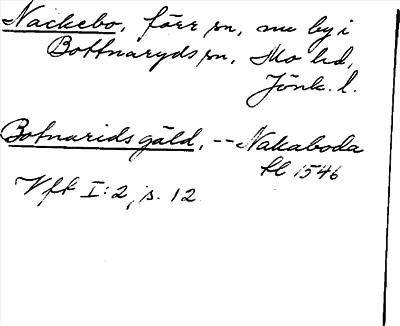 Nackebo, förr sn, nu by i
Bottnaryds sn, Mo hd,
Jönk. l.
Botnarids gäld, -- Nakaboda
hl 1546
Vft I:2, s. 12